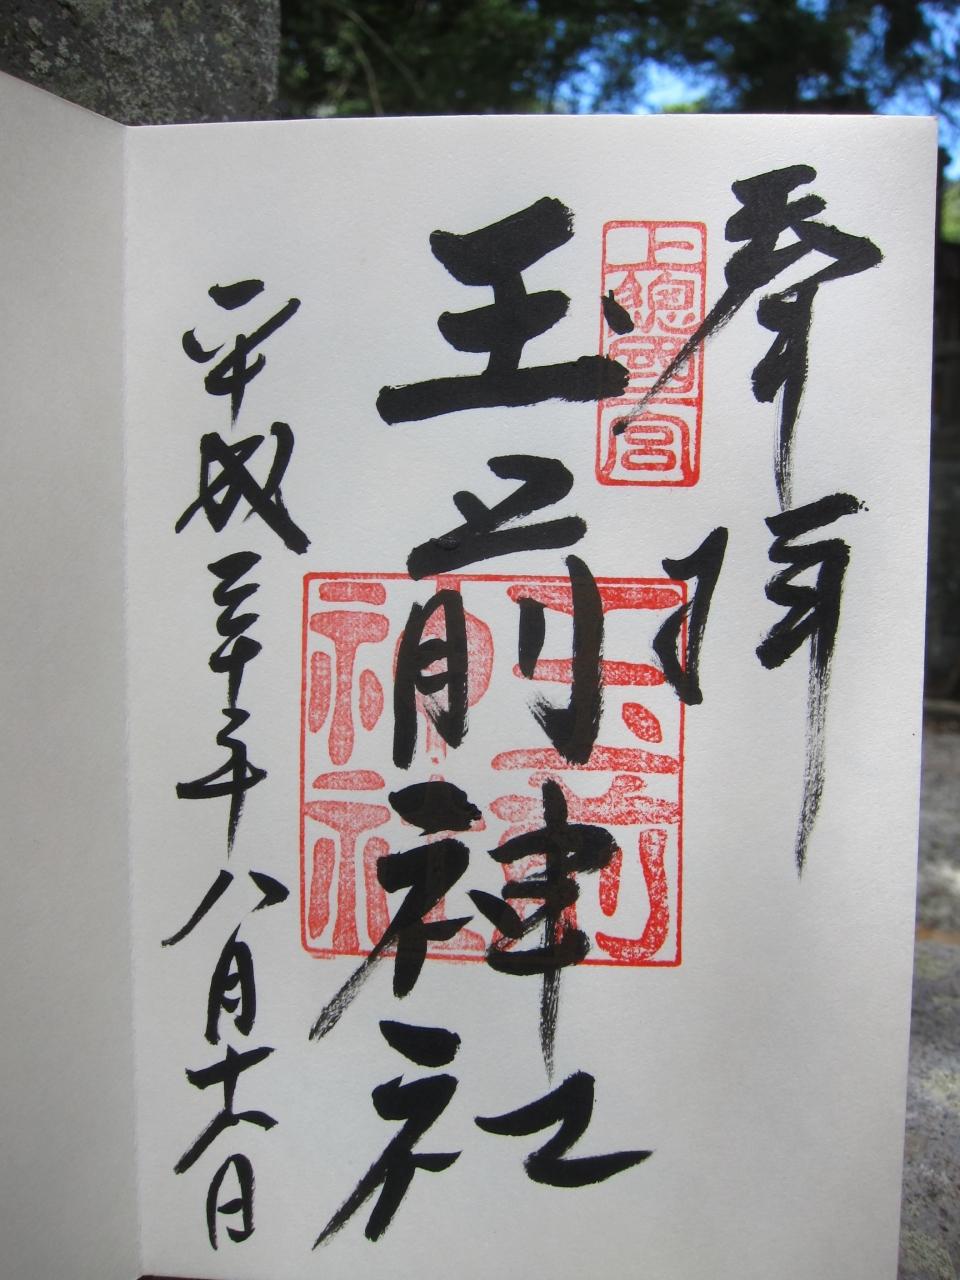 奉拝
上總國一宮
玉前神社
玉前神社
平成三十年八月十八日